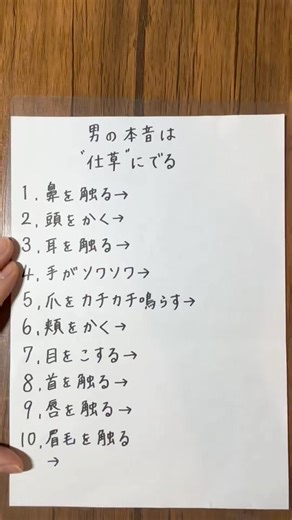 男の本音は
"仕草"にでる
1.鼻を触る→
2.頭をかく→
3.耳を触る→
4.手がソワソワ→
5.爪をカチカチ鳴らす→
6.頬をかく→
7.目をこする→
8.首を触る→
9.唇を触る→
10.眉毛を触る
→